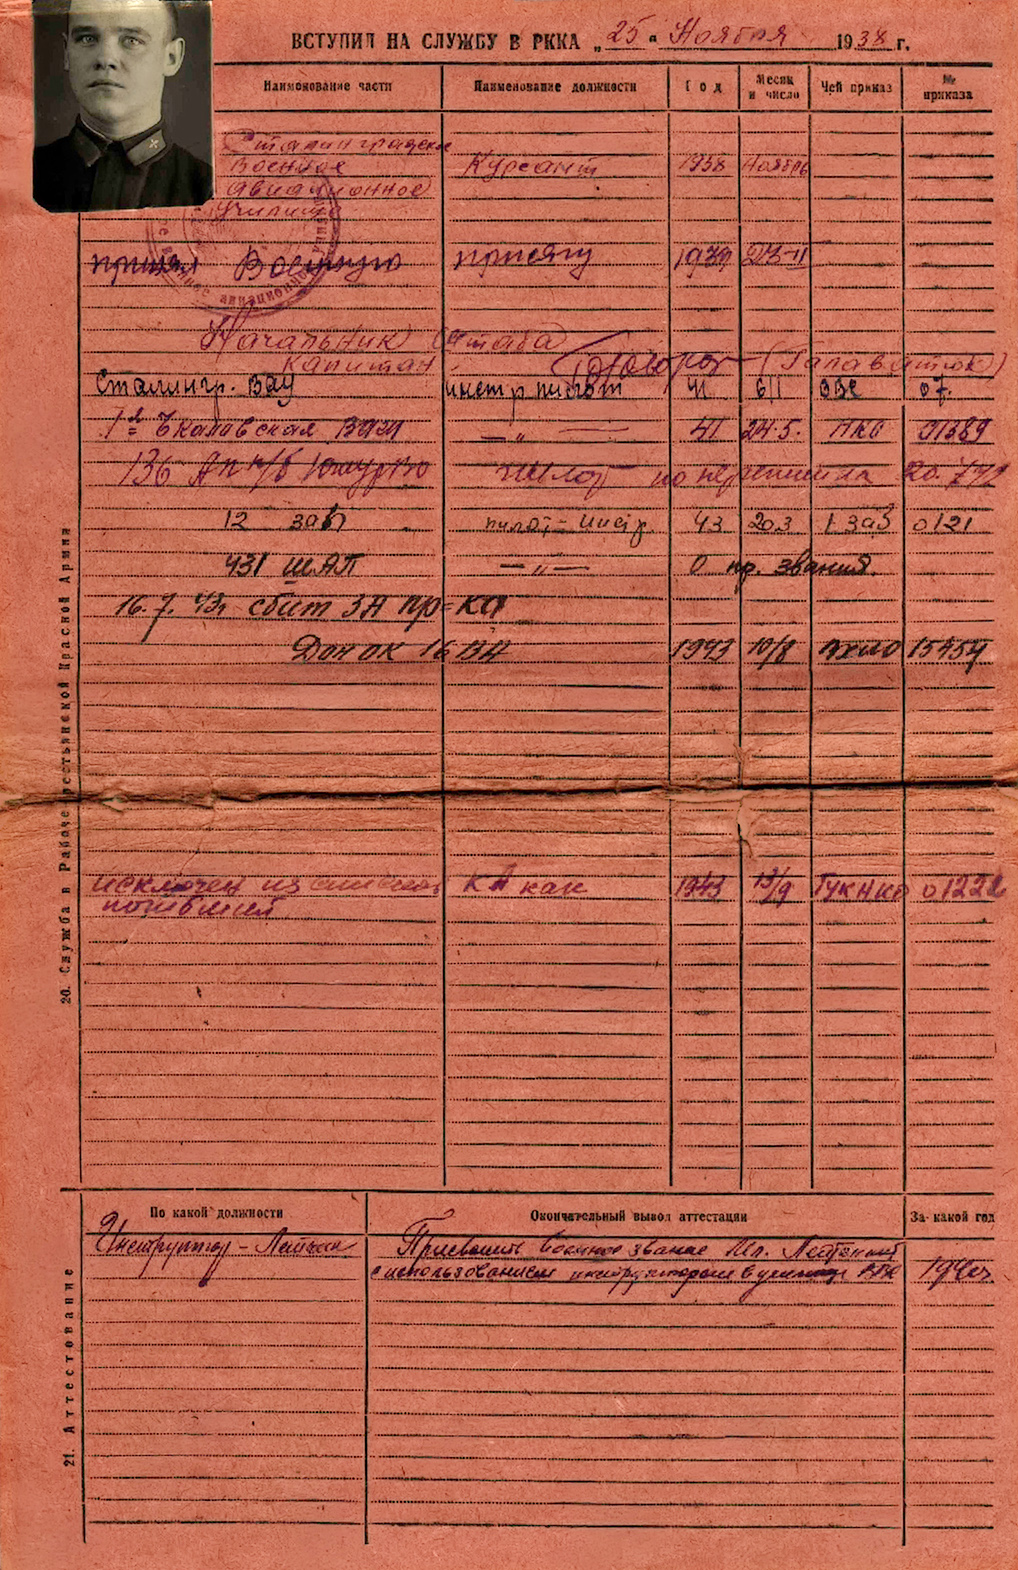 ВСТУПИЛ НА СЛУЖБУ В РККА „25" Ноября 1938 г.
Наименование части Наименование должности Год Месяц и число Чей приказ № приказа
Сталинградское
Военное Курсант 1938 Ноябрь
Авиационное
Училище
принял Военную присягу 1939 23-II
Начальник Штаба
Капитан
Сталингр. ВАУ инстр. пилот 41 6/I ВВС 07.
1ая Чкаловская ВАШ —„— 41 24.5.
136 Ап н/б пилот по
12 заб пилот-инстр. 43 20.3 1 заб 0121
431 ШАП —„— 0 пр. звания.
16.7.43г сбит ЗА пр-ка
Дон ок 16 ВА 1943 10/8 15454
исключен из списков КА как 1943 13/9 ГУКНКО 01222
погибший
20. Служба в Рабоче-Крестьянской Красной Армии
По какой должности Окончательный вывод аттестации За какой год
Инструктор-Летчик Присвоить военное звание Мл. Лейтенант
с использованием инструктором в училище 1940г
21. Аттестование